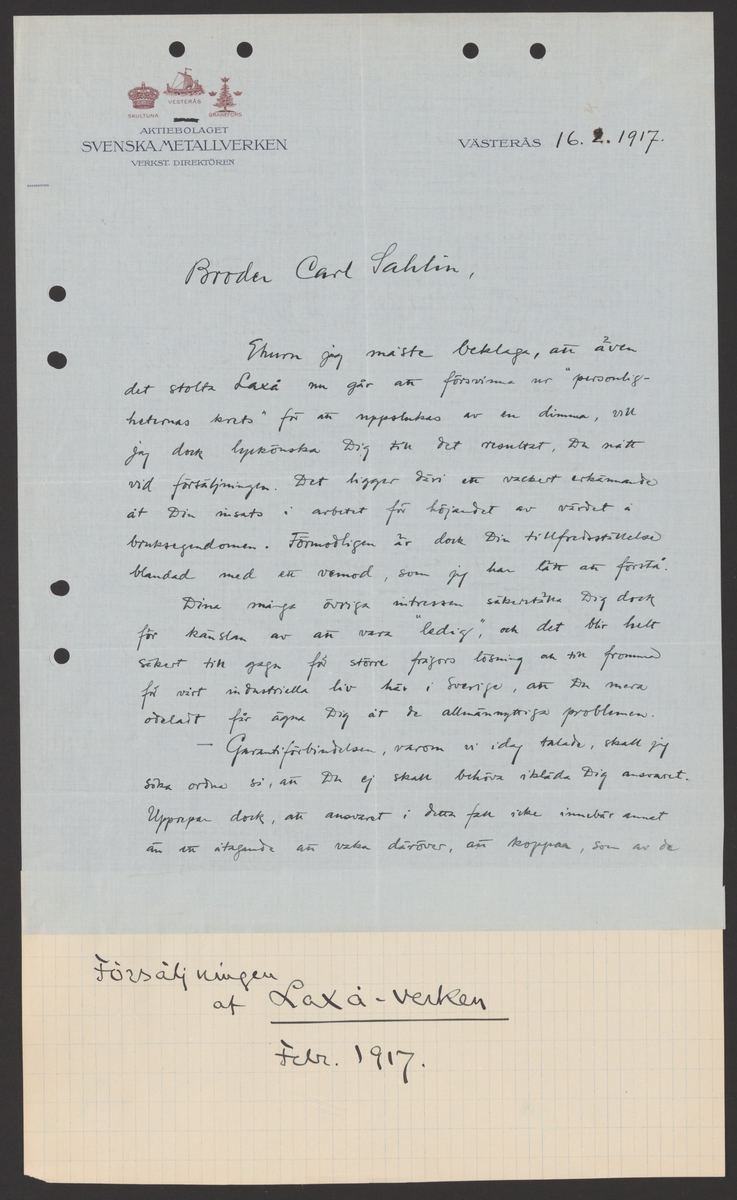 SKULTUNA
VESTERÅS
GRANEFORS
AKTIEBOLAGET
SVENSKA METALLVERKEN
VERKST. DIREKTÖREN
VÄSTERÅS 16.2.1917.
Broder Carl Sahlin,
Ehuru jag måste beklaga, att även
det stolta Laxå nu går att försvinna ur "personlig-
heternas krets" för att uppslukas av en dimma, vill
jag dock lyckönska Dig till det resultat, Du nått
vid försäljningen. Det ligger däri ett vackert erkännande
åt Din insats i arbetet för höjandet av värdet å
bruksegendomen. Förmodligen är dock Din tillfredsställelse
blandad med ett vemod, som jag har lätt att förstå.
Dina många övriga intressen säkerställa Dig dock
för känslan av att vara "ledig", och det blir helt
säkert till gagn för större frågors lösning och till fromma
för vårt industriella liv här i Sverige, att Du mera
odelat får ägna Dig åt de allmännyttiga problemen.
— Garantiförbindelsen, varom vi idag talade, skall jag
söka ordna så, att Du ej skall behöva ikläda Dig ansvaret.
Upprepar dock, att ansvaret i detta fall icke innebär annat
än ett åtagande att vaka däröver, att koppar, som av de
Försäljningen
af Laxå-verken
Febr. 1917.